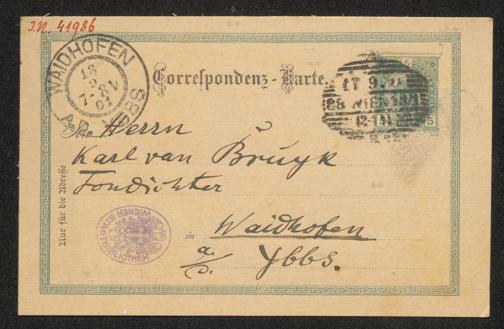 I.N. 41986
WAIDHOFEN
18
9
7-8V
01
A.D. YBBS
Correspondenz-Karte.
17 9.
WIEN
An Herrn
Karl van Bruyk
Tondichter
in Waidhofen
a/d. Ybbs.
Nur für die Adresse
WIENER STADTBIBLIOTHEK
5